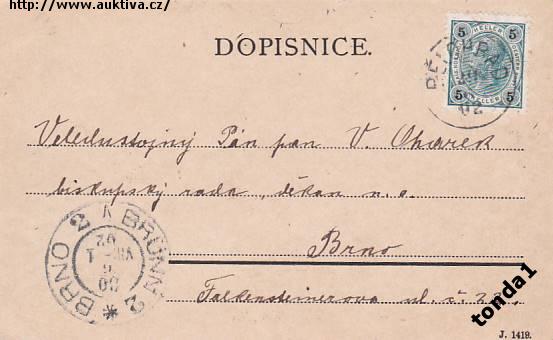 http://www.auktiva.cz/
DOPISNICE.
5 HELLER 5
5 HELLER 5
BĚLOHRAD
02
Veledůstojný Pán pan V. Oharek
biskupský rada, děkan n. o.
Brno
Falkensteinerova ul. č. 22
BRNO 2 BRÜNN 2
tonda1
J. 1419.